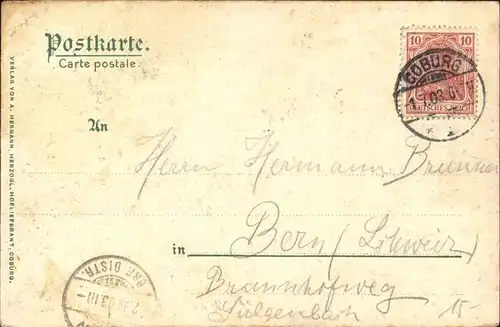 Postkarte.
Carte postale.
10 10
DEUTSCHES REICH
COBURG
An
Herrn Hermann Brunner
in Bern (Schweiz)
Brunnhofweg
Sulgenbach
15-
BRF. DISTR.
VERLAG VON A. HERMANN, HERZOGL. HOFLIEFERANT, COBURG.